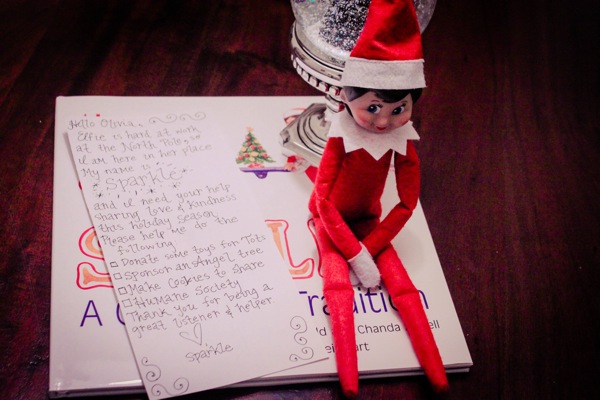 Hello Olivia,
Elfie is hard at work
at the North Pole, so
I am here in her place
My name is
Sparkle
and I need your help
sharing love & kindness
this holiday season.
Please help me do the
following
Donate some toys for Tots
Sponsor an Angel tree
Make Cookies to share
Humane Society
Thank you for being a
great listener & helper
Sparkle
A
Tradition
Chanda